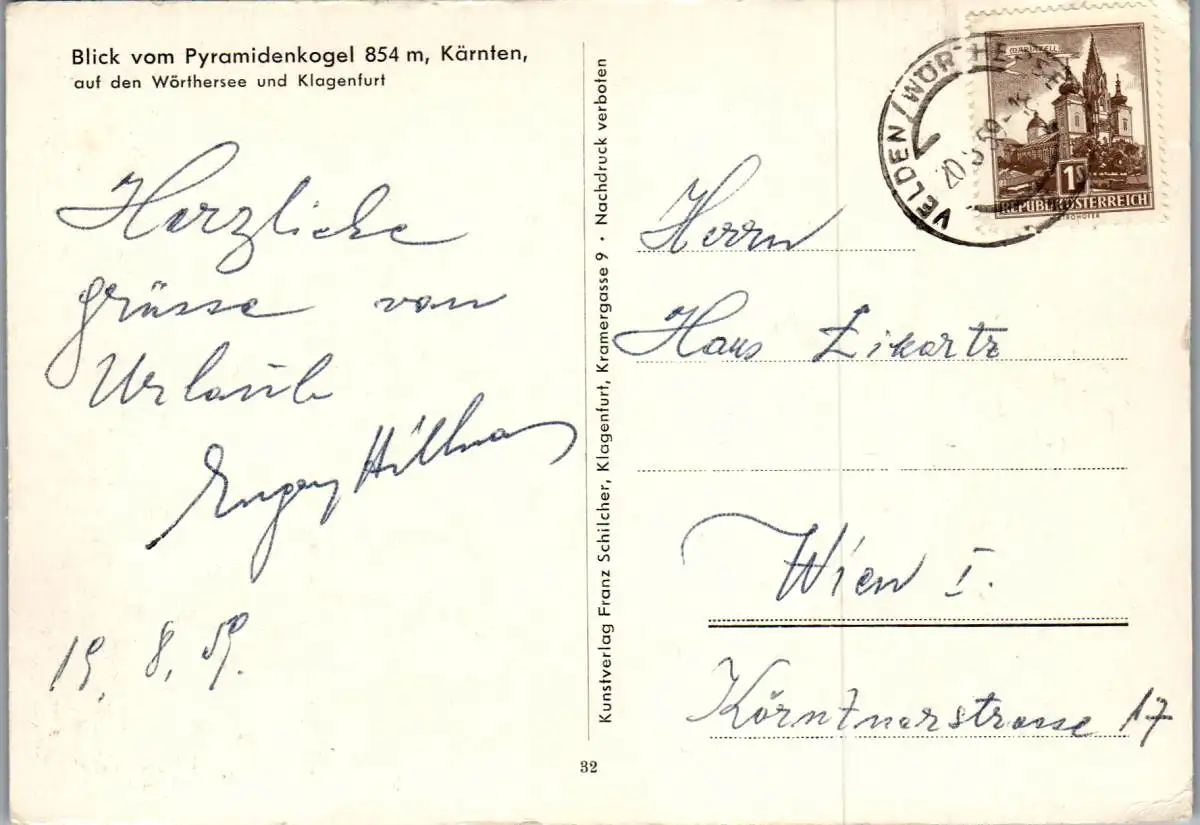 Blick vom Pyramidenkogel 854 m, Kärnten,
auf den Wörthersee und Klagenfurt
Herzliche
grüsse von
Urlaub
19. 8. 59.
Kunstverlag Franz Schilcher, Klagenfurt, Kramergasse 9 • Nachdruck verboten
32
MARIAZELL
1S
REPUBLIK ÖSTERREICH
VELDEN/WÖRTHERSEE
Herrn
Hans Likartz
Wien I.
Körntnerstrasse 17